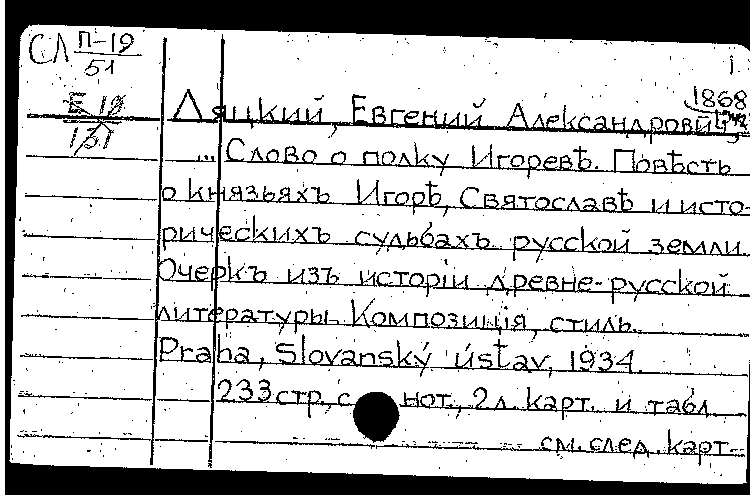 СЛ П-19
51
1
Е 18
131
1868
Ляцкий, Евгений Александрович,
... Слово о полку Игоревѣ. Повѣсть
о князьяхъ Игорѣ, Святославѣ и исто-
рическихъ судьбахъ русской земли.
Очеркъ изъ исторіи древне-русской
литературы. Композиція, стиль.
Praha, Slovanský ústav, 1934.
233 стр., с нот., 2 л. карт. и табл.
см. след. карт.